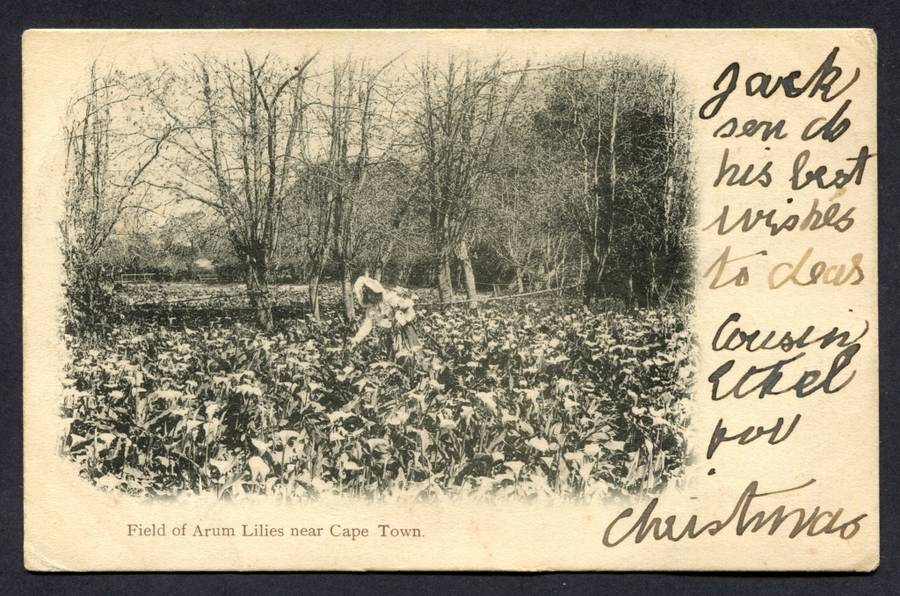 Jack
sen ds
his best
wishes
to dear
Cousin
Ethel
for
Christmas
Field of Arum Lilies near Cape Town.